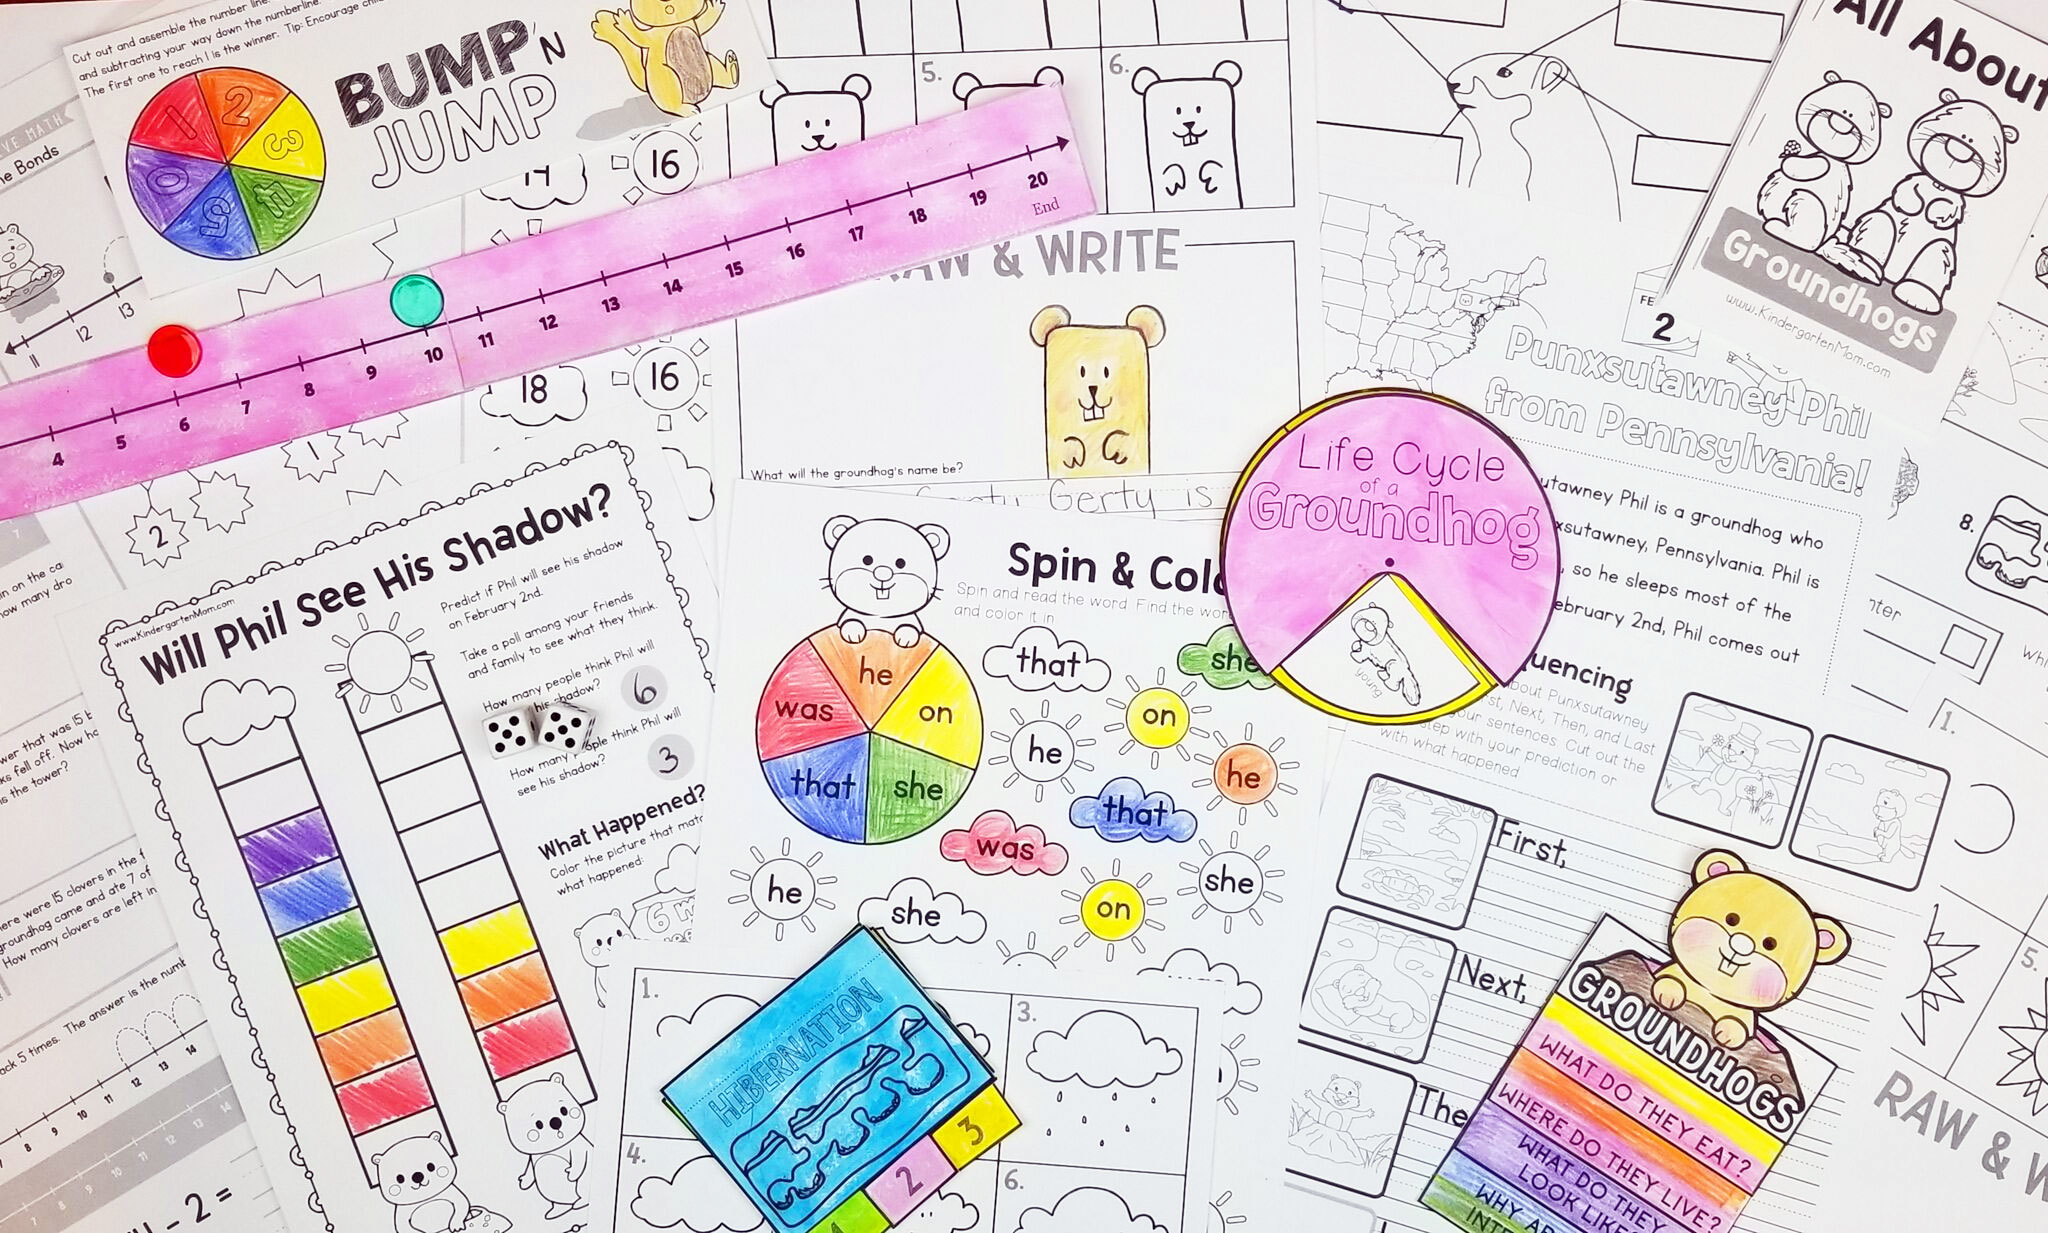 Cut out and assemble the number line.
and subtracting your way down the numberline. Tip: Encourage
The first one to reach 1 is the winner.
BUMP 'N
JUMP
1
2
3
4
5
0
MATH
Bonds
11
12
13
16
18
16
1
2
4
5
6
7
8
9
10
11
12
13
14
15
16
17
18
19
20
End
5.
6.
& WRITE
What will the groundhog's name be?
Gerty is
All About
Groundhogs
www.KindergartenMom.com
2
Punxsutawney Phil
from Pennsylvania!
Phil is a groundhog who
Pennsylvania. Phil is
so he sleeps most of the
2nd, Phil comes out
8.
Life Cycle
of a
Groundhog
young
www.KindergartenMom.com
Will Phil See His Shadow?
Predict if Phil will see his shadow
on February 2nd.
Take a poll among your friends
and family to see what they think.
How many people think Phil will
his shadow?
6
How many people think Phil will
see his shadow?
3
What Happened?
Color the picture that
what happened:
6
Spin &
Spin and read the word. Find the
and color it in
he
on
she
that
was
that
she
on
he
he
that
was
she
he
on
she
about Punxsutawney
Next, Then, and Last
your sentences. Cut out the
step with your prediction or
with what happened
First,
Next,
The
on the
how many
that was 15
fell off. Now
is the tower?
were 15 clovers in the
groundhog came and ate 7 of
How many clovers are left in
5 times. The answer is the
8
9
10
11
12
13
14
7
8
9
10
11
12
13
14
- 2 =
1.
3.
4.
6.
HIBERNATION
1
2
3
GROUNDHOGS
WHAT DO THEY EAT?
WHERE DO THEY LIVE?
WHAT DO THEY
LOOK LIKE?
WHY
1.
5.
RAW &